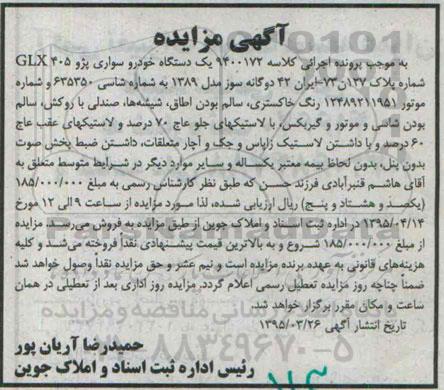 آگهی مزایده
به موجب پرونده اجرائی کلاسه ۹۴۰۰۱۷۲ یک دستگاه خودرو سواری پژو ۴۰۵ GLX
شماره پلاک ۱۳۷ن۷۳-ایران ۴۲ دوگانه سوز مدل ۱۳۸۹ به شماره شاسی ۶۳۵۳۵۰ و شماره
موتور ۱۲۴۸۹۲۱۱۹۵۱ رنگ خاکستری، سالم بودن اطاق، شیشه‌ها، صندلی با روکش، سالم
بودن شاسی و موتور و گیربکس، با لاستیکهای جلو عاج ۷۰ درصد و لاستیکهای عقب عاج
۶۰ درصد و با داشتن لاستیک زاپاس و جک و آچار متعلقات، داشتن ضبط پخش صوت
بدون پنل، بدون لحاظ بیمه معتبر یکساله و سایر موارد دیگر در شرایط متوسط متعلق به
آقای هاشم قنبرآبادی فرزند حسن که طبق نظر کارشناس رسمی به مبلغ ۱۸۵/۰۰۰/۰۰۰
(یکصد و هشتاد و پنج) ریال ارزیابی شده، لذا مورد مزایده از ساعت ۹ الی ۱۲ مورخ
۱۳۹۵/۰۴/۱۴ در اداره ثبت اسناد و املاک جوین از طبق مزایده به فروش می‌رسد مزایده
از مبلغ ۱۸۵/۰۰۰/۰۰۰ شروع و به بالاترین قیمت پیشنهادی نقداً فروخته می‌شود و کلیه
هزینه‌های قانونی به عهده برنده مزایده است و نیم عشر و حق مزایده نقداً وصول خواهد شد
ضمناً چناچه روز مزایده تعطیل رسمی اعلام گردد. مزایده روز اداری بعد از تعطیلی در همان
ساعت و مکان مقرر برگزار خواهد شد.
تاریخ انتشار آگهی ۱۳۹۵/۰۳/۲۶
حمیدرضا آریان پور
رئیس اداره ثبت اسناد و املاک جوین
۰۲۱-۸۸۳۴۹۶۷۰-۵